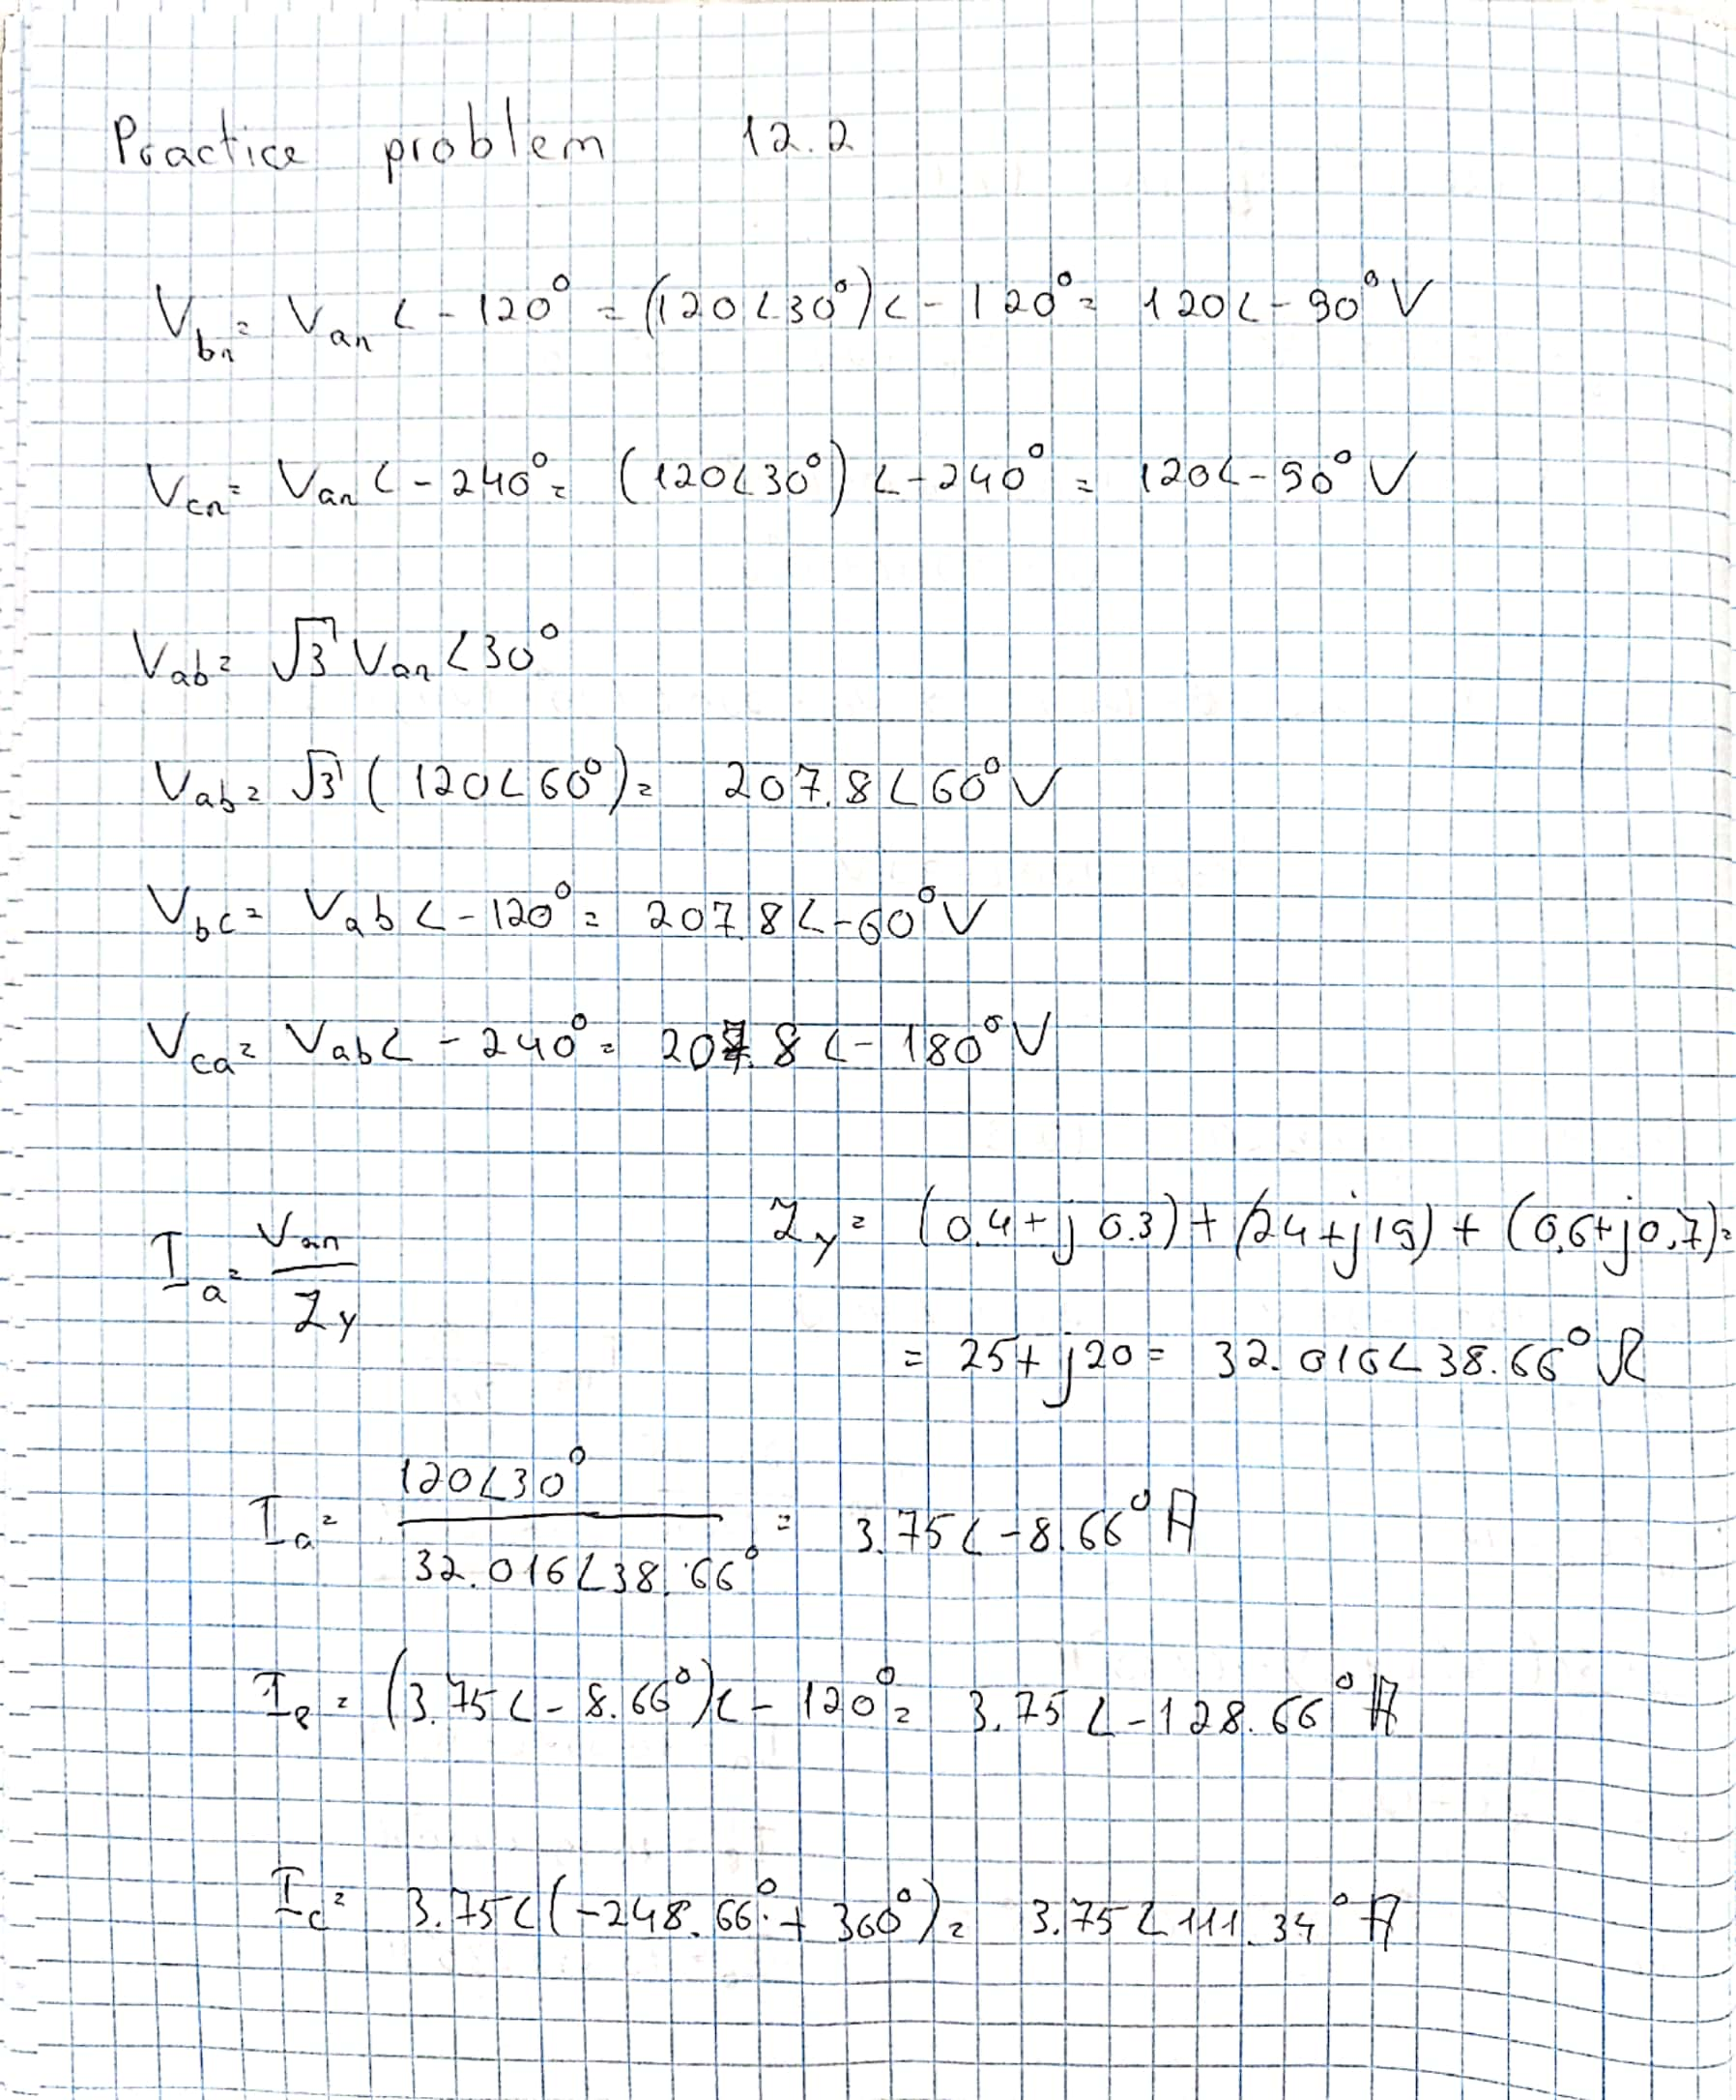 Practice problem 12.2
V_bn = V_an ∠-120° = (120∠30°)∠-120° = 120∠-90° V
V_cn = V_an ∠-240° = (120∠30°)∠-240° = 120∠-90° V
V_ab = √3 V_an ∠30°
V_ab = √3 (120∠60°) = 207.8∠60° V
V_bc = V_ab ∠-120° = 207.8∠-60° V
V_ca = V_ab ∠-240° = 207.8∠-180° V
I_a = V_an / Z_Y
Z_Y = (0.4+j0.3)+(24+j19)+(0.6+j0.7) =
= 25+j20 = 32.016∠38.66° Ω
I_a = 120∠30° / 32.016∠38.66° = 3.75∠-8.66° A
I_B = (3.75∠-8.66°)∠-120° = 3.75∠-128.66° A
I_c = 3.75∠(-248.66°+360°) = 3.75∠111.34° A